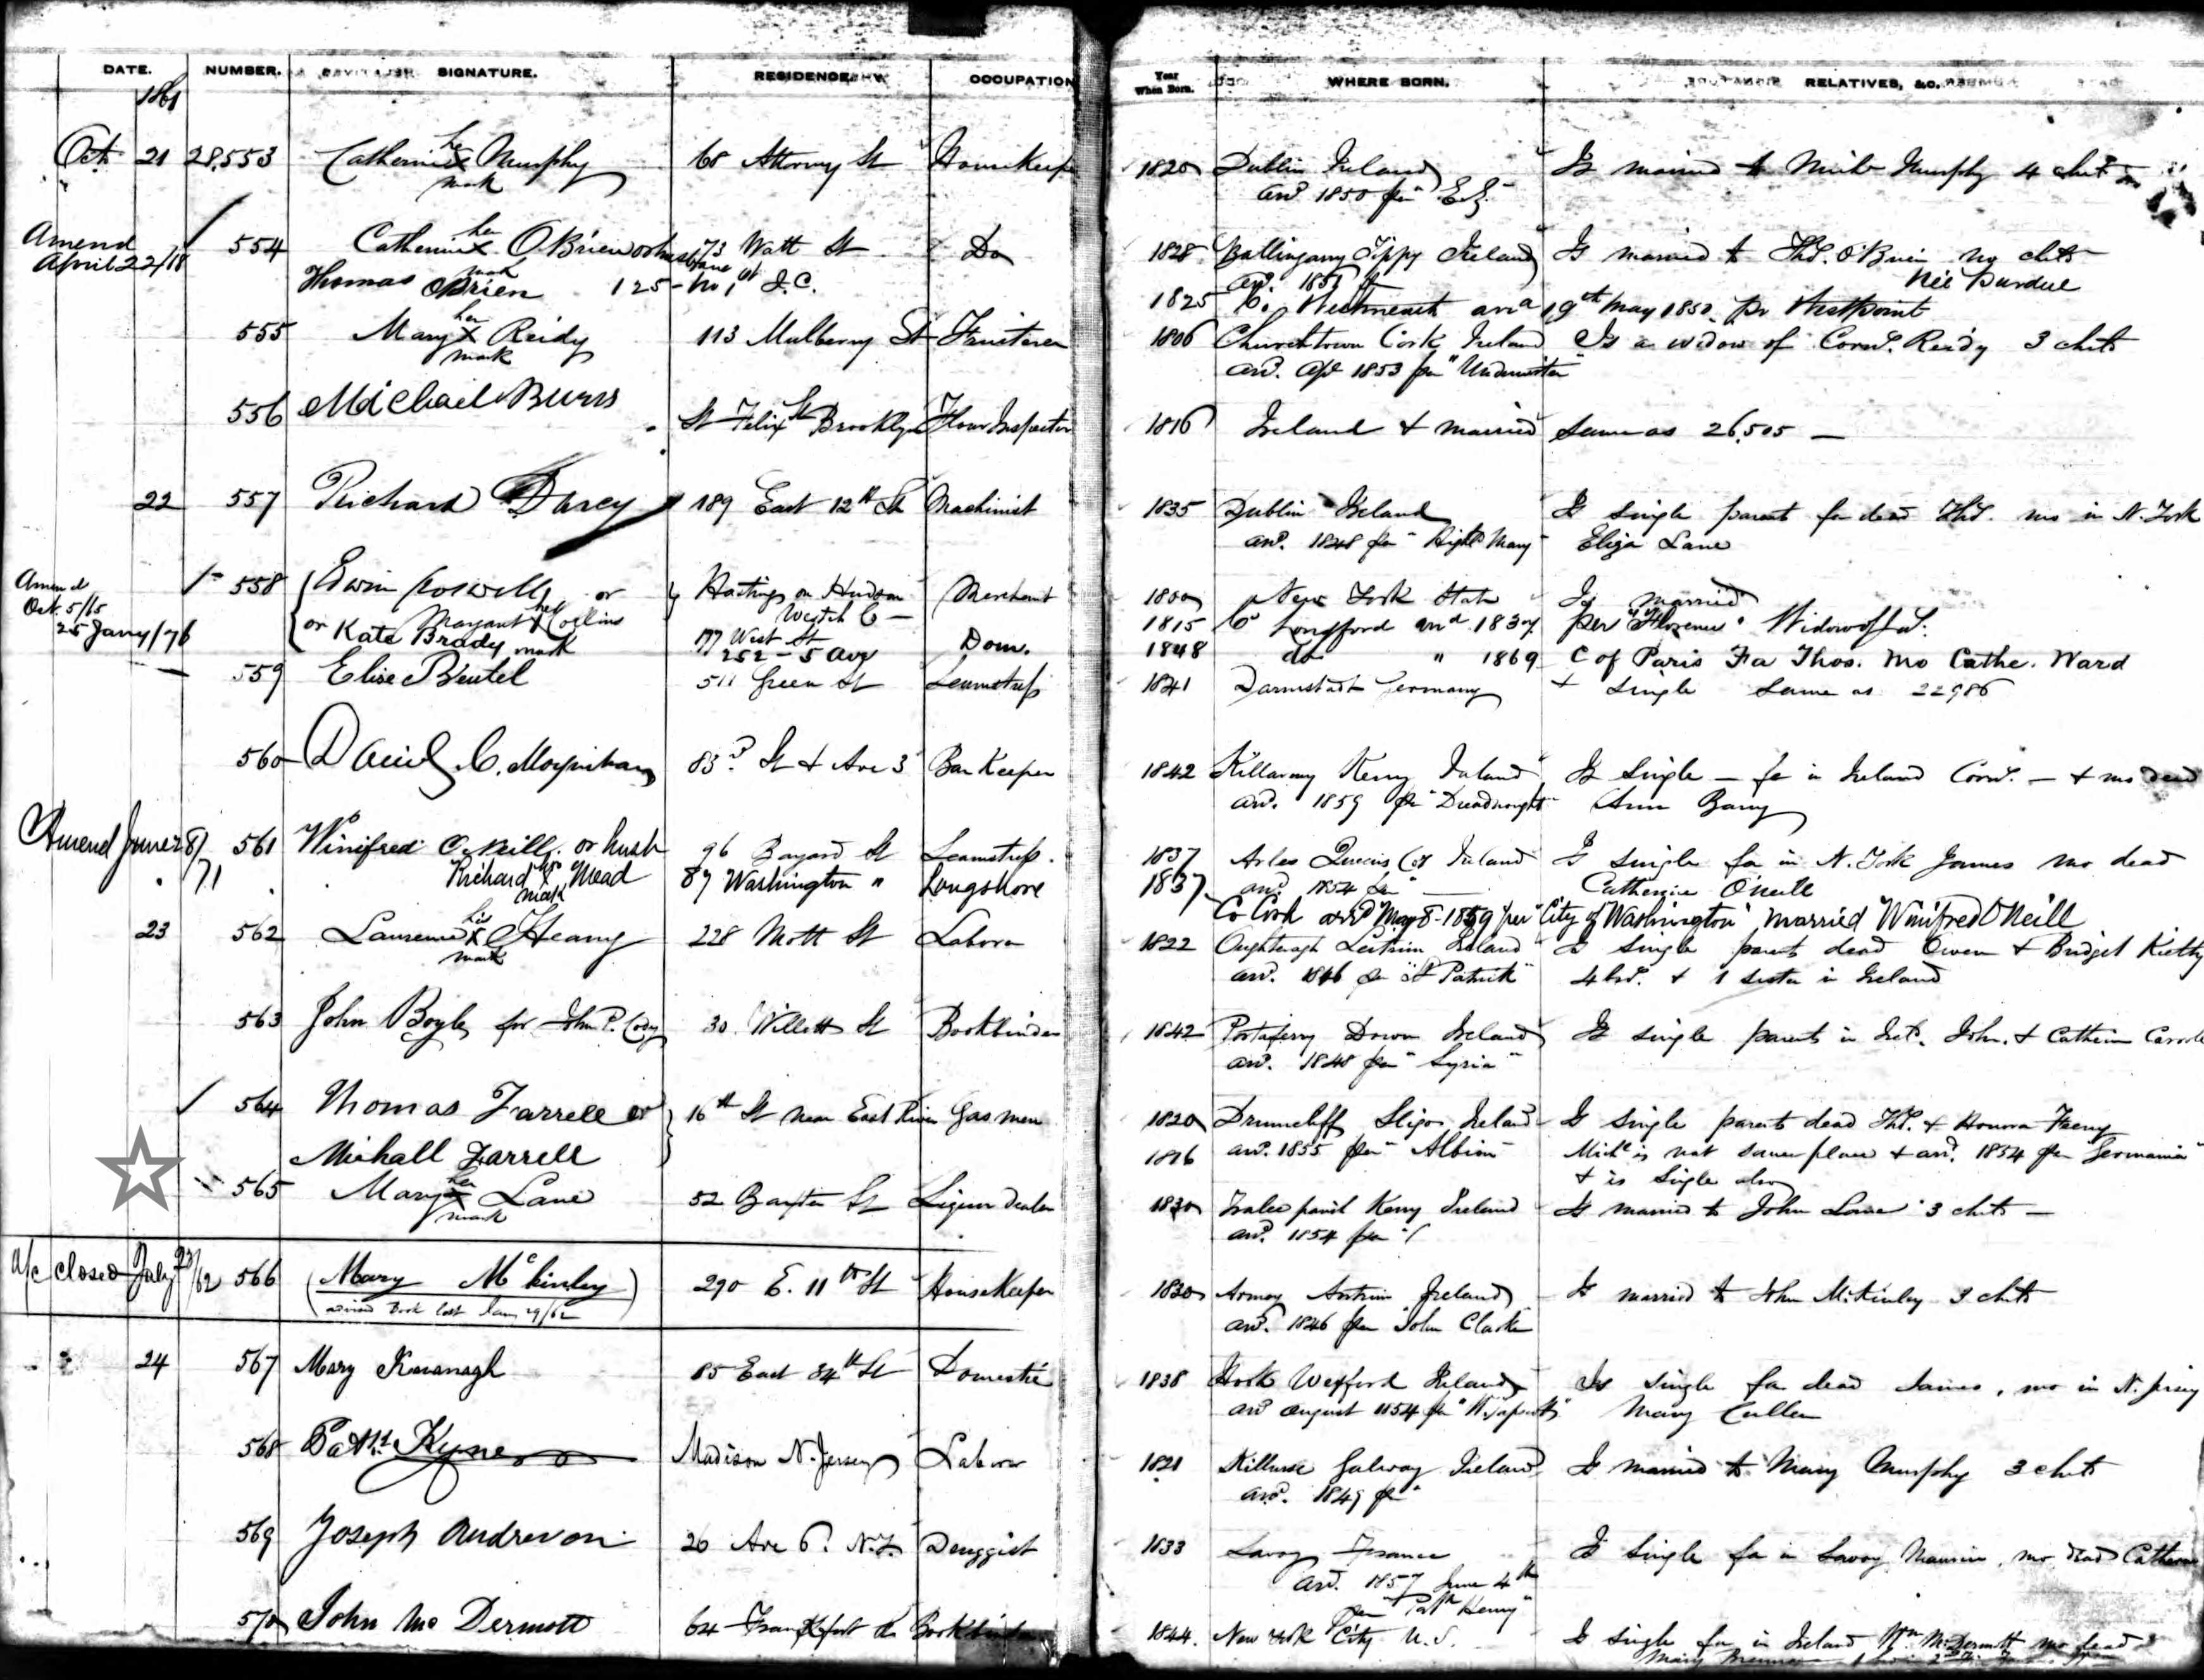 DATE. NUMBER. SIGNATURE. RESIDENCE. OCCUPATION Year When Born. WHERE BORN. RELATIVES, &C.
1861
Oct 21 28,553 Catherine her x mark Murphy 68 Attorney St HouseKeeper 1820 Dublin Ireland Is married to Murphy 4 chn
arrd. 1850 per
Amend 554 Catherine her x mark O'Brien or husband 73 Watt St Do 1828 Ballingarry Tippy Ireland Is married to Thos. O'Brien no chn
April 22/78 Thomas OBrien 125 - J.C. arrd. 1851 per Neé Purdue
1825 Co. Westmeath arrd 19th May 1850 pr Westpoint
555 Mary her x mark Reidy 113 Mulberry St Fruiterer 1806 Churchtown Cork Ireland Is a widow of Corns. Reidy 3 chn
arrd. Apl 1853 per "Underwriter"
556 Michael Burns St Felix St Brooklyn Flour Inspector 1816 Ireland & married same as 26,505 —
22 557 Richard Darcy 189 East 12th St Machinist 1835 Dublin Ireland Is single parents fa dead Thos. mo in N. York
arrd. 1848 per Mary" Eliza Lane
Amend 558 Edwin Croswell or Hastings on Hudson Merchant 1800 New York State Is married
Oct. 5/65 Margaret her x mark Collins Westch Co — 1815 Co Longford arrd 183 per "Florence" Widow of
25 Jany/76 or Kate Brady 177 West St Dom. 1848 do " 1869 C of Paris Fa Thos. Mo Cathe. Ward
252 - 5 Ave
559 Elise Beutel 511 Green St Seamstress 1841 Darmstadt Germany & single same as 22986
560 David C. Moynihan 83d. St & Ave 3 Bar Keeper 1842 Killarney Kerry Ireland Is single — fa in Ireland Corns. — & mo dead
arrd. 1859 per "Dreadnought" Ann Barry
Amend June 28/71 561 Winifred O'Neill or husb 96 Bayard St Seamstress. 1837 Arles Queens Co Ireland Is single fa in N. York James mo dead
Richard his x mark Mead 87 Washington " Longshore 1837 arrd. 1854 per " — Catherine O'Neill
Co Cork arrd May 8-1859 per "City of Washington" married Winifred O'Neill
23 562 Laurence his x mark Heany 228 Mott St Laborer 1822 Oughteragh Leitrim Ireland Is single parents dead Owen & Bridget
arrd. 1846 per "St Patrick" 4 bro. & 1 sister in Ireland
563 John Boyle for John P. Cody 30 Willett St Bookbinder 1842 Portaferry Down Ireland Is single parents in Ireld. John & Catherine
arrd. 1848 per "Syria"
564 Thomas Farrell or 16th St near East River Gas men 1820 Drumcliff Sligo Ireland Is single parents dead Thos. & Honora Feeny
Michall Farrell 1816 arrd. 1855 per "Albion" Michl is not same place & arrd. 1854 per Germania"
& is single also
565 Mary her x mark Lane 52 Baxter St Liquor dealer 1830 Tralee parish Kerry Ireland Is married to John Lane 3 chn —
arrd. 1854 per "
A/c closed July 23/62 566 (Mary McKinley) 290 E. 11th St HouseKeeper 1830 Armoy Antrim Ireland Is married to John McKinley 3 chn
Book lost Jan 29/62 arrd. 1846 per John Clarke
24 567 Mary Kavanagh 85 East 34th St Domestic 1838 Hook Wexford Ireland Is single fa dead James, mo in N. Jersey
arrd August 1854 per Mary Cullen
568 Patk Kyne Madison N. Jersey Laborer 1821 Galway Ireland Is married to Mary Murphy 3 chn
arrd. 1849 per "
569 Joseph Andrevon 26 Ave 6. N.Y. Druggist 1833 Savoy France Is single fa in Savoy, mo dead Catherine
arrd. 1857 June 4th
per "Patk Henry"
570 John McDermott 64 Frankfort St Bookbinder 1844. New York City U.S. Is single fa in Ireland Wm. McDermott mo dead